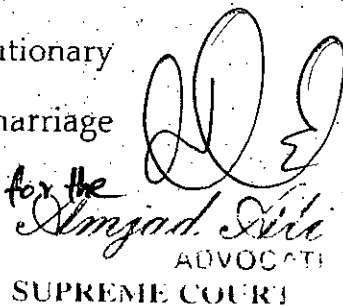 utionary
marriage
for the
Amjad Ali
ADVOCATE
SUPREME COURT